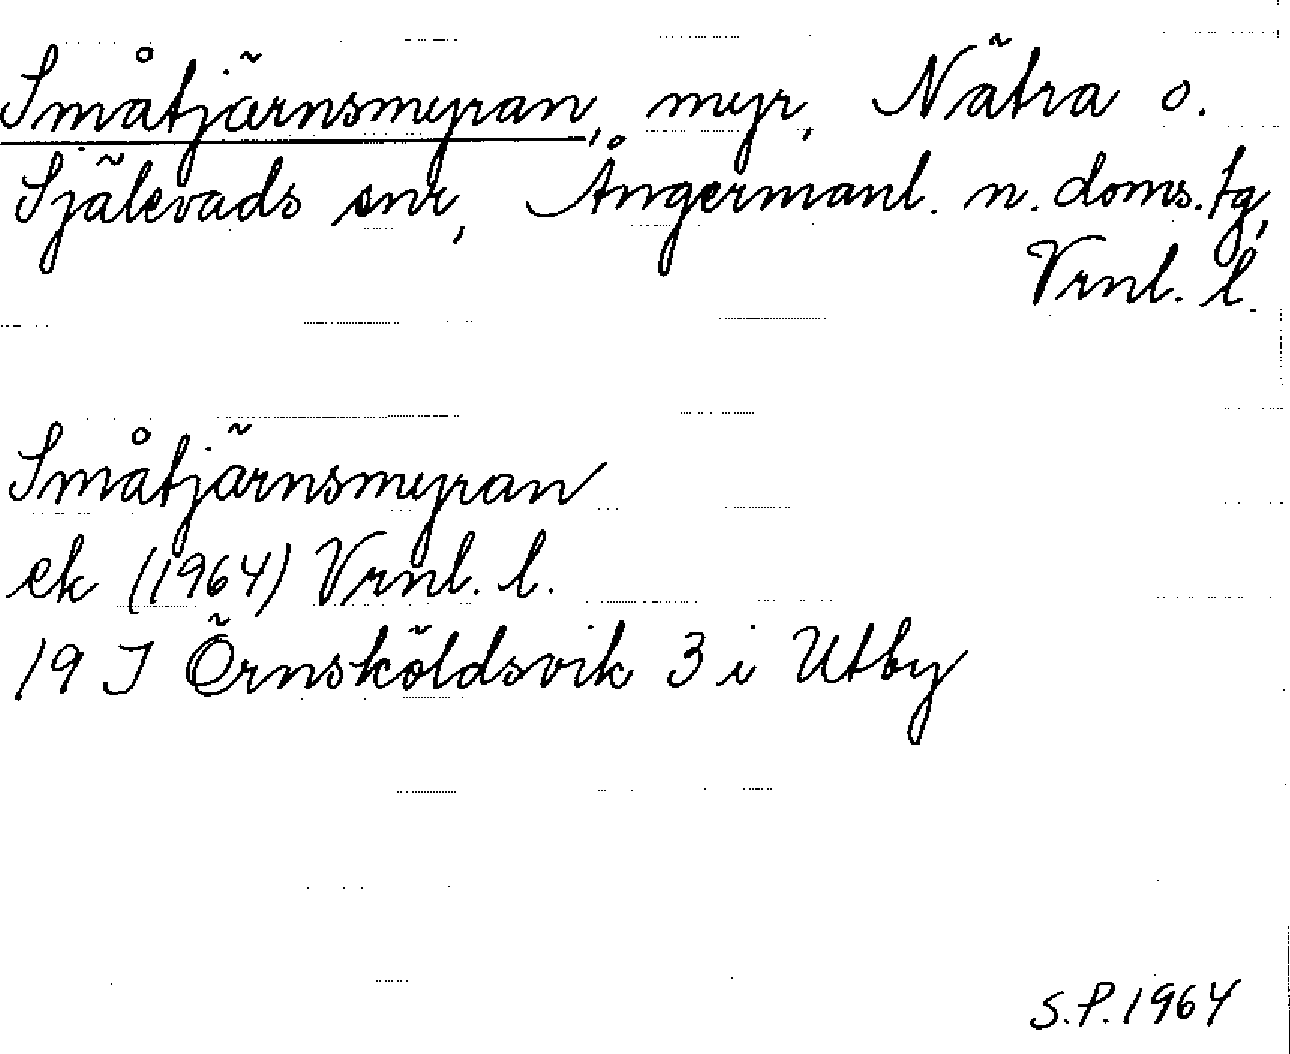 Småtjärnsmyran, myr, Nätra o.
Själevads snr, Ångermanl. n. doms.tg,
Vrnl. l.
Småtjärnsmyran
ek (1964) Vrnl. l.
19 J Örnsköldsvik 3 i Utby
S.P. 1964